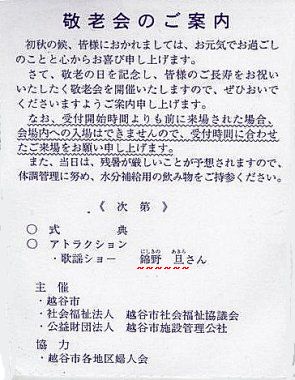 敬老会のご案内
初秋の候、皆様におかれましては、お元気でお過ごし
のことと心からお喜び申し上げます。
さて、敬老の日を記念し、皆様のご長寿をお祝い
いたしたく敬老会を開催いたしますので、ぜひおいで
くださいますようご案内申し上げます。
なお、受付開始時間よりも前に来場された場合、
会場内への入場はできませんので、受付時間に合わせ
たご来場をお願い申し上げます。
また、当日は、残暑が厳しいことが予想されますので、
体調管理に努め、水分補給用の飲み物をご持参ください。
《 次 第 》
○ 式 典
○ アトラクション
にしきの あきら
・歌謡ショー 錦野 旦さん
主 催
・越谷市
・社会福祉法人 越谷市社会福祉協議会
・公益財団法人 越谷市施設管理公社
協 力
・越谷市各地区婦人会